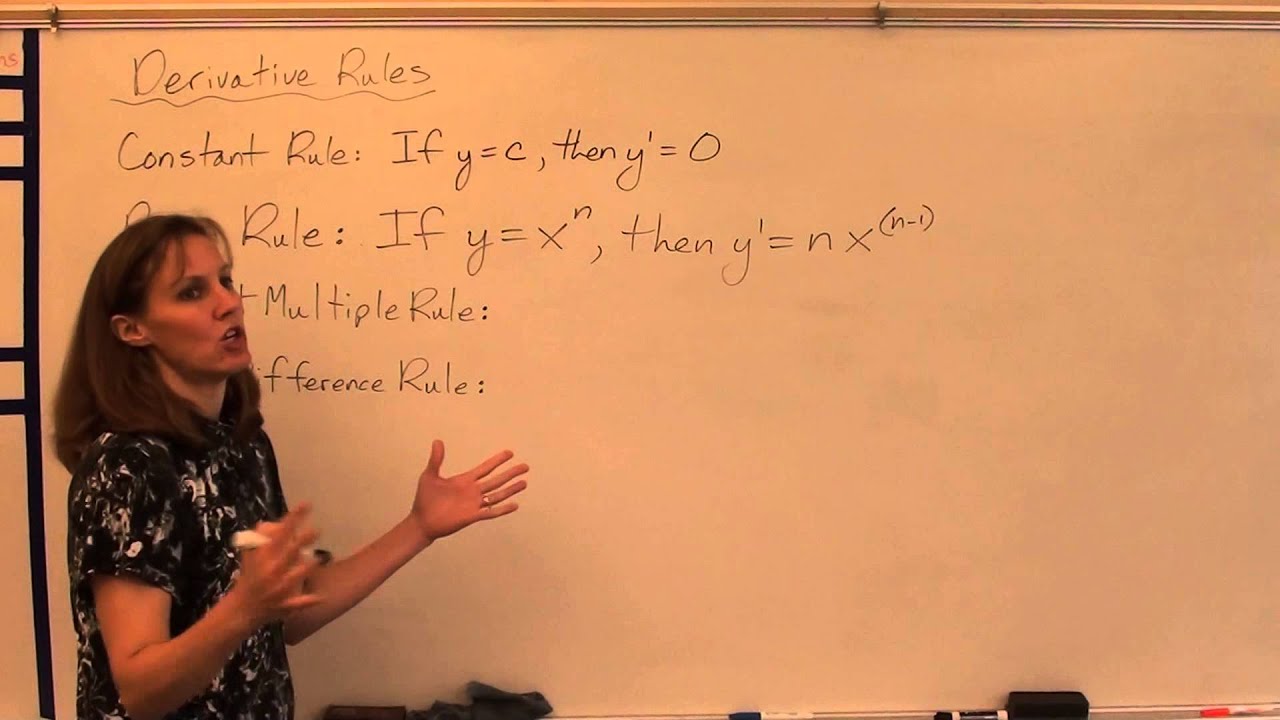 ns
Derivative Rules
Constant Rule: If y=c, then y'=0
Rule: If y=xⁿ, then y'=nx⁽ⁿ⁻¹⁾
Multiple Rule:
Rule: